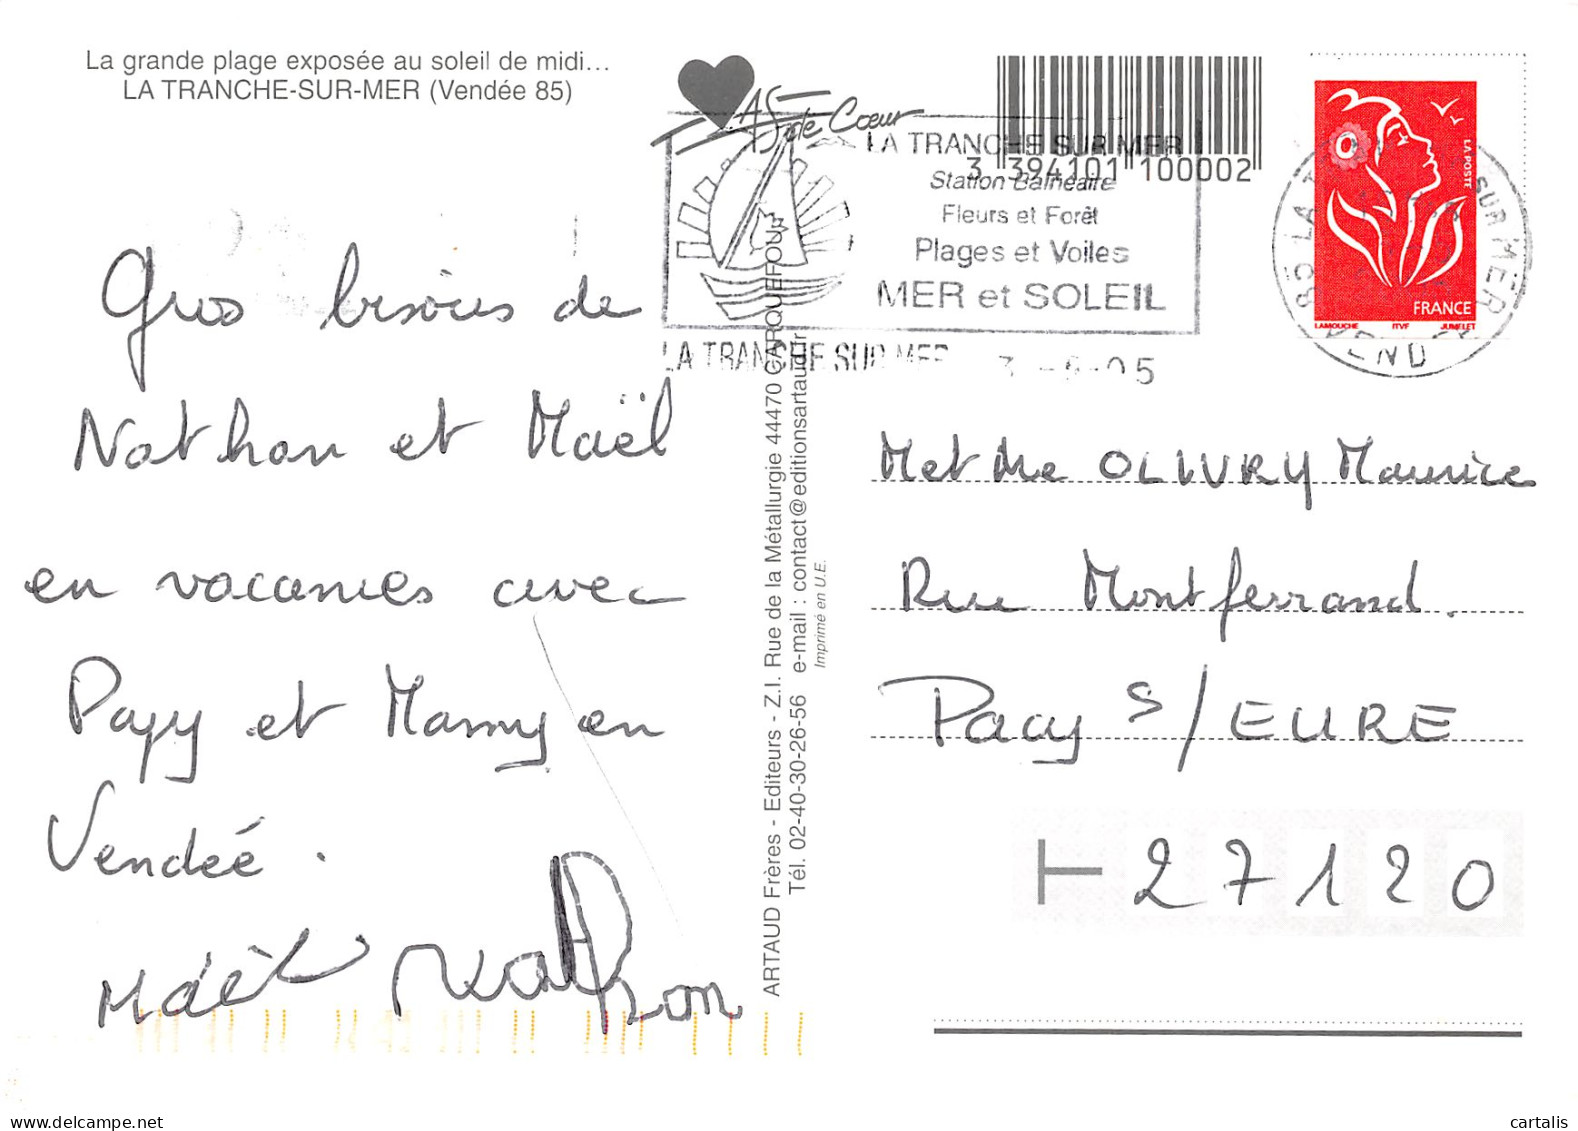 La grande plage exposée au soleil de midi...
LA TRANCHE-SUR-MER (Vendée 85)
AS de Cœur
3 394101 100002
LA TRANCHE SUR MER
Station Balnéaire
Fleurs et Forêt
Plages et Voiles
MER et SOLEIL
LA TRANCHE SUR MER 3 -6-05
LA POSTE
FRANCE
LAMOUCHE ITVF JUMELET
85 LA TRANCHE SUR MER
VENDEE
Gros bisous de
Nathan et Maël
en vacances avec
Papy et Mamy en
Vendéé.
Maël Nathan
ARTAUD Frères - Editeurs - Z.I. Rue de la Métallurgie 44470 CARQUEFOU
Tél. 02-40-30-26-56 e-mail : contact@editionsartaud.fr
Imprimé en U.E.
M et Me OLIVRY Maurice
Rue Montferrand.
Pacy s/EURE
27120
cartalis